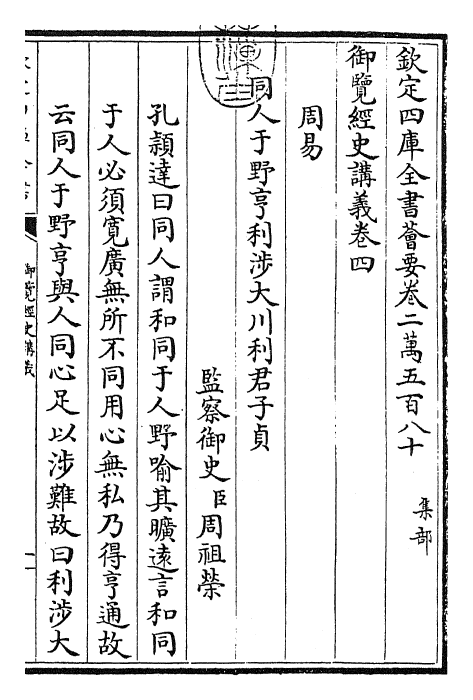 欽定四庫全書薈要卷二萬五百八十
集部
御覽經史講義卷四
周易
同人于野亨利涉大川利君子貞
監察御史臣周祖榮
孔頴達曰同人謂和同于人野喻其曠逺言和同
于人必須寛廣無所不同用心無私乃得亨通故
云同人于野亨與人同心足以涉難故曰利涉大
御覽經史講義
一